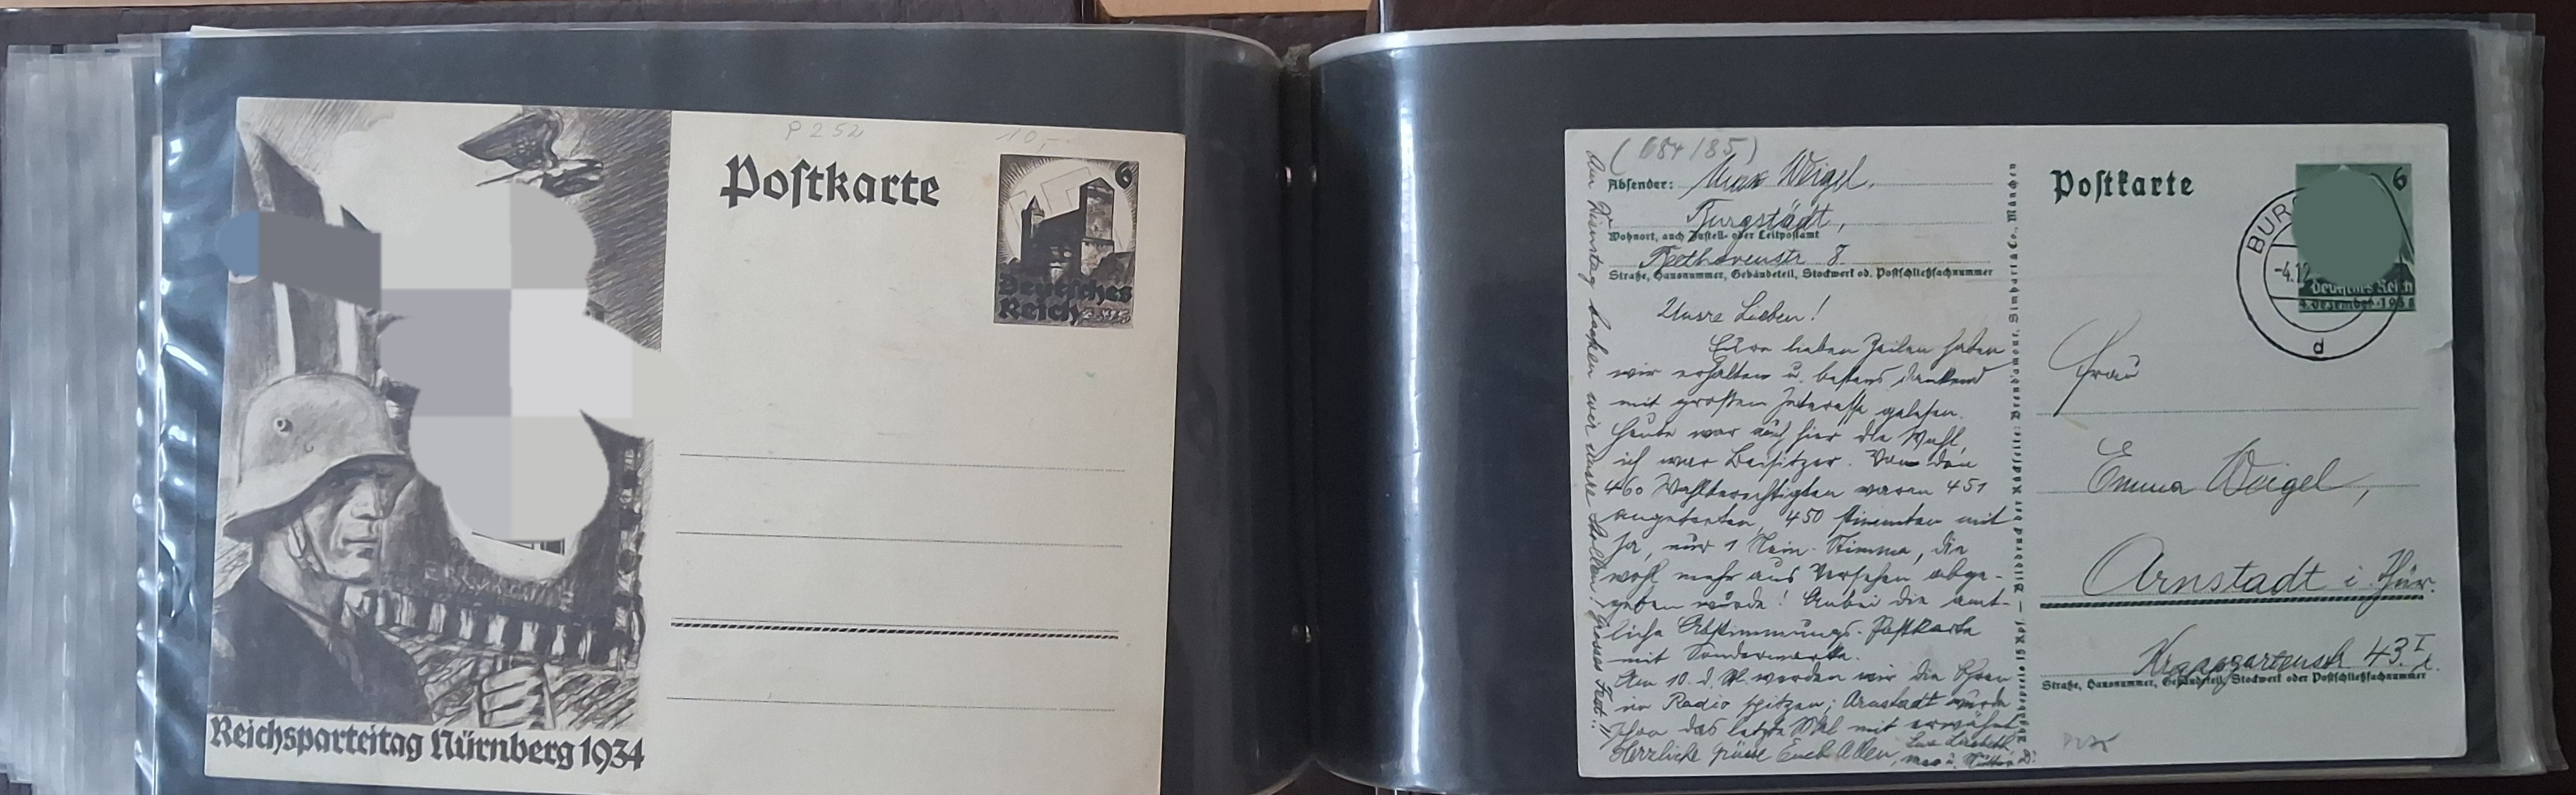 P 252
10,-
Postkarte
6
Deutsches
Reich
Reichsparteitag Nürnberg 1934
(684/85)
Absender: Max Weigel,
Burgstädt,
Wohnort, auch Zustell- oder Leitpostamt
Beethovenstr 8
Straße, Hausnummer, Gebäudeteil, Stockwerk od. Postschließfachnummer
Unsre Lieben!
Eure lieben Zeilen haben
wir erhalten u. bestens dankend
mit großem Interesse gelesen.
Heute war auch hier die Wahl,
ich war Beisitzer. Von den
460 Wahlberechtigten waren 451
angetreten, 450 stimmten mit
Ja, nur 1 Nein-Stimme, die
wohl mehr aus Versehen abge-
geben wurde! Anbei die amt-
liche Abstimmungs-Postkarte
mit Sondermarke.
Am 10. d. M. werden wir die Ohren
im Radio spitzen; Arnstadt wurde
schon das letzte Mal mit erwähnt
Herzliche Grüße Euch Allen,
Am Dienstag backen wir unsre Stollen! Grosses Fest!!
Postkarte
6
BURG
-4.12
d
Deutsches Reich
4. Dezember 1938
Frau
Emma Weigel,
Arnstadt i. Thür.
Krappgartenstr 43.I
Straße, Hausnummer, Gebäudeteil, Stockwerk oder Postschließfachnummer